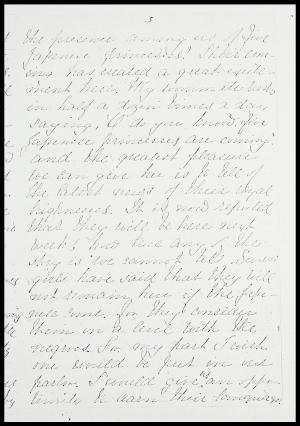 3
the presence among us of five
Japanese princesses! Their com-
ing has created a great excite-
ment here. My room mate rushes
in half a dozen times a day,
saying, "O do you know, five
Japanese princesses are coming"
and the greatest pleasure
we can give her is to tell of
the latest news of their royal
highnesses. It is now reported
that they will be here next
week, but how true any of the
story is we cannot tell. Several
girls have said that they will
not remain here if the Japa-
nese come, for they consider
them on a level with the
negroes. For my part I wish
one would be put in our
parlor. I would give an oppor-
tunity to learn their language